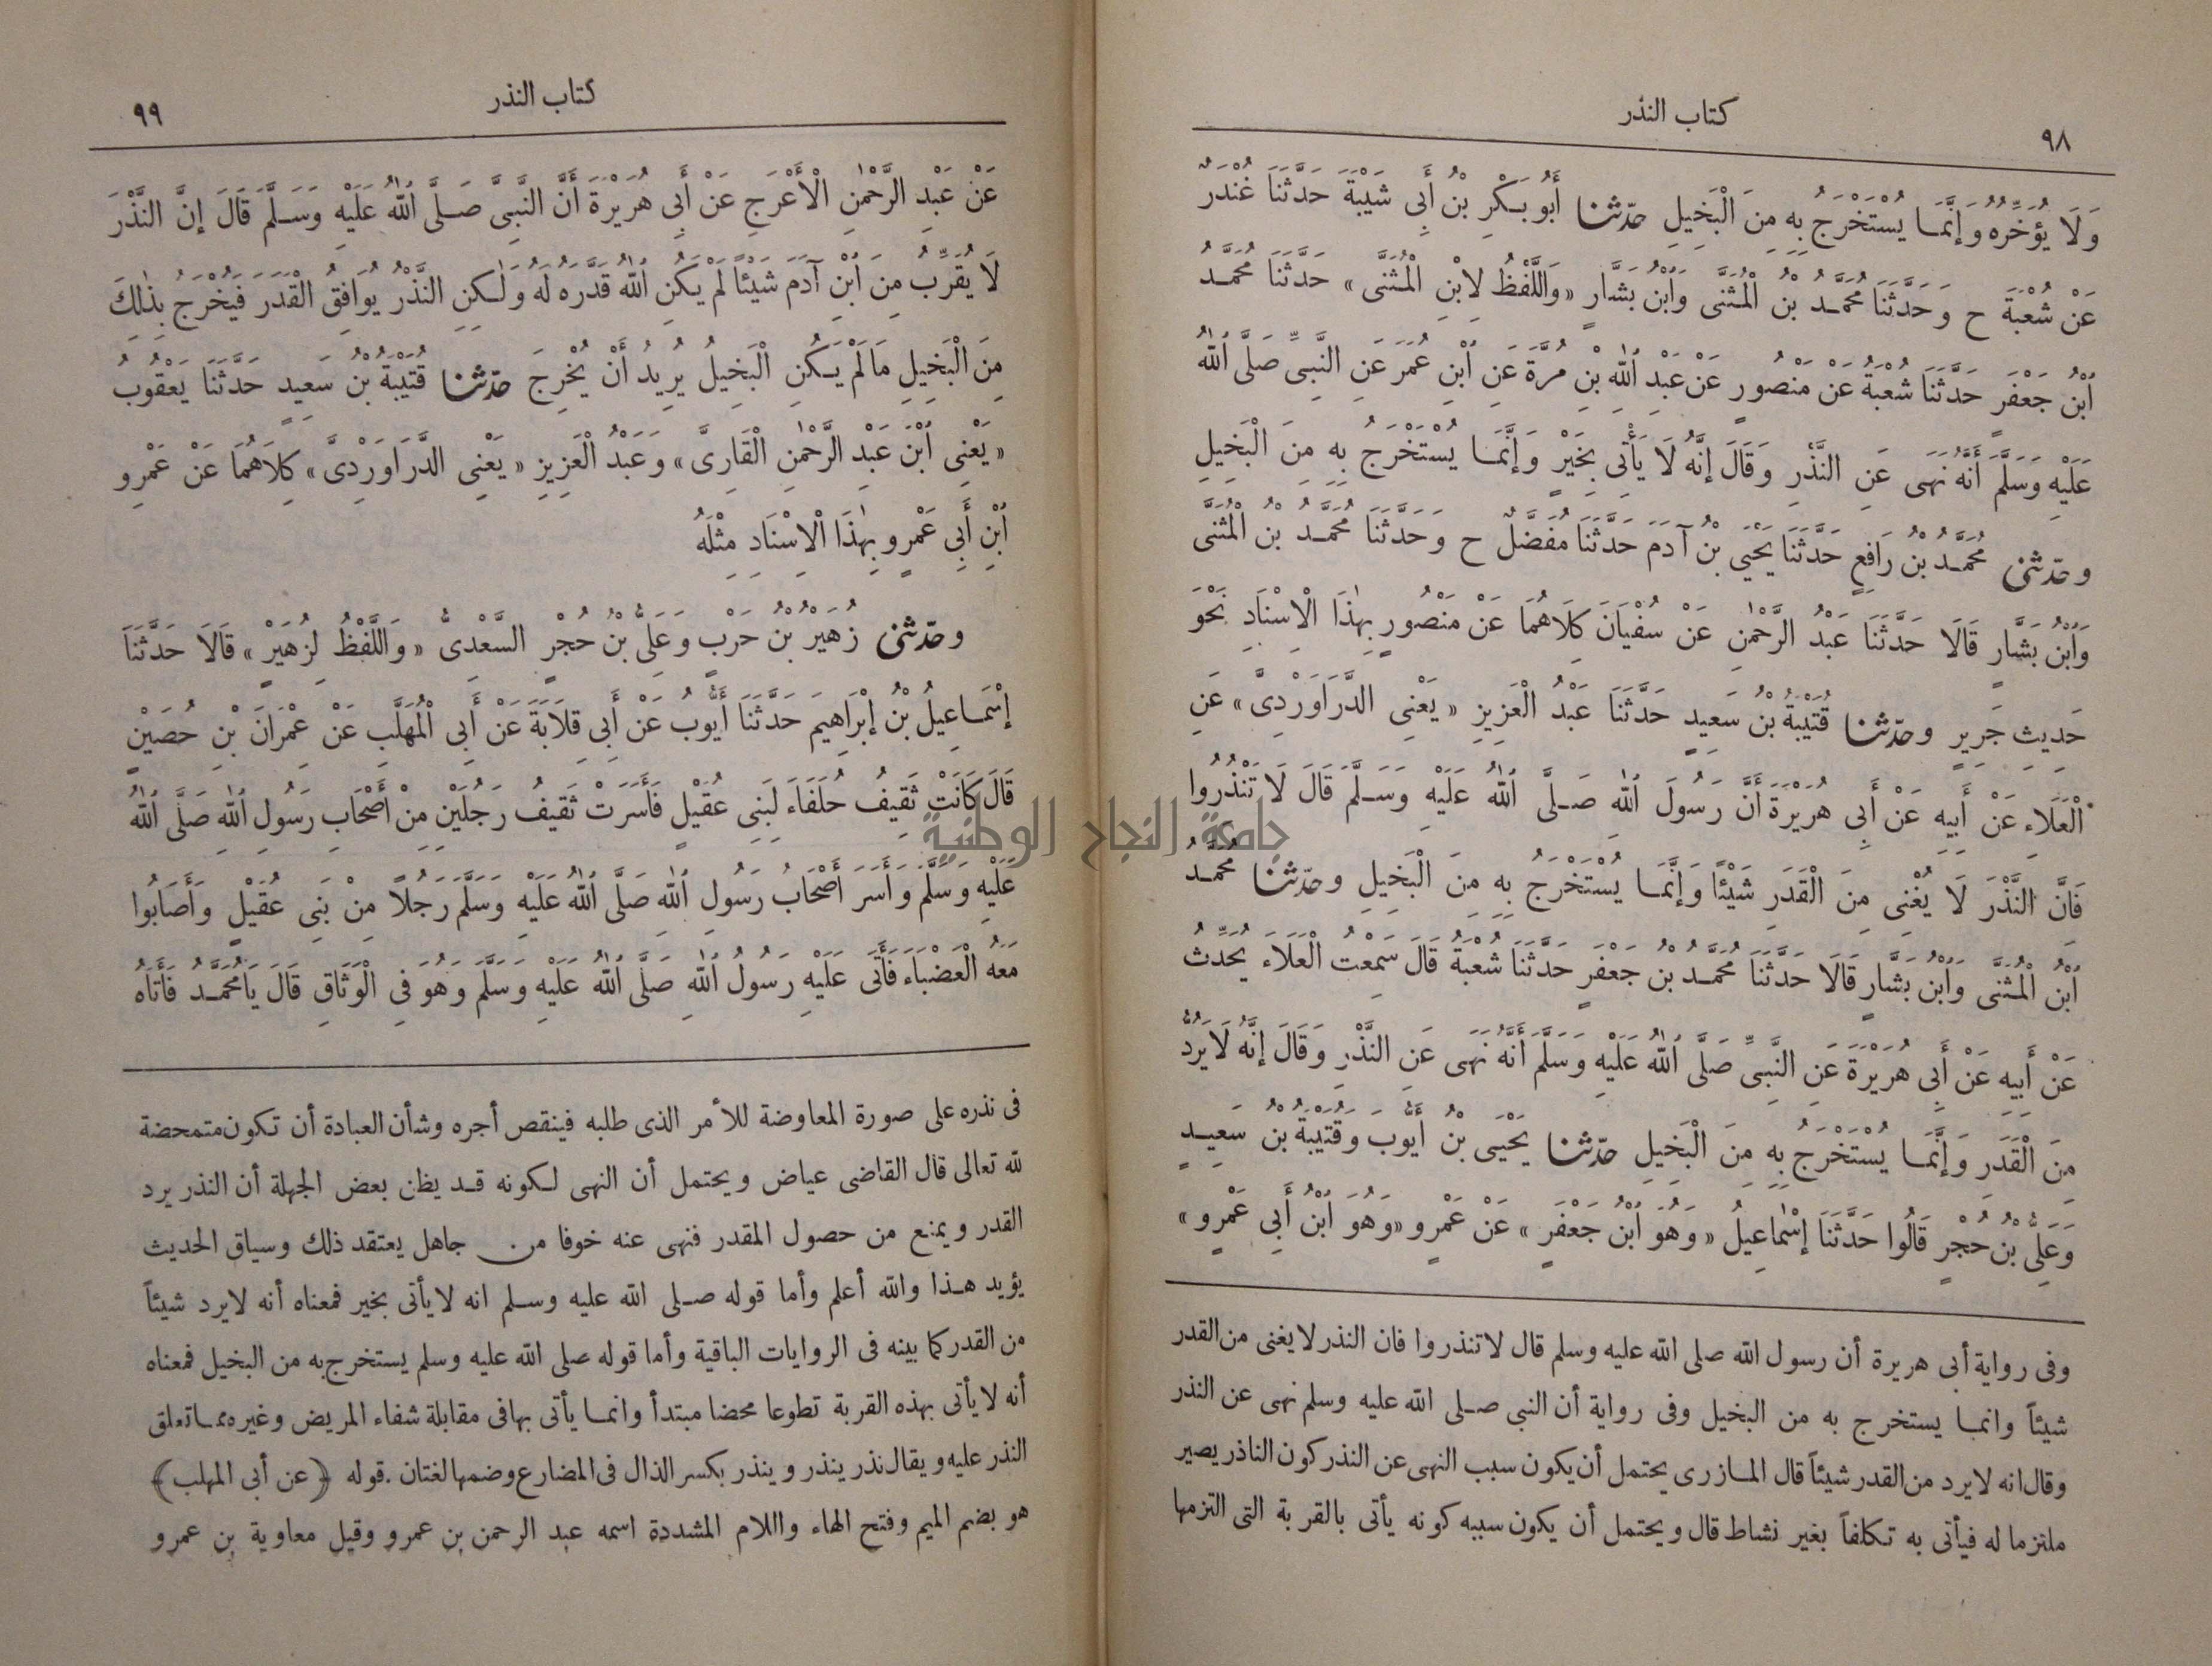 ٩٨
كتاب النذر
وَلَا يُؤَخِّرُهُ وَإِنَّمَا يُسْتَخْرَجُ بِهِ مِنَ الْبَخِيلِ حدّثنا أَبُو بَكْرِ بْنُ أَبِى شَيْبَةَ حَدَّثَنَا غُنْدَرٌ
عَنْ شُعْبَةَ ح وَحَدَّثَنَا مُحَمَّدُ بْنُ الْمُثَنَّى وَابْنُ بَشَّارٍ «وَاللَّفْظُ لِابْنِ الْمُثَنَّى» حَدَّثَنَا مُحَمَّدُ
ابْنُ جَعْفَرٍ حَدَّثَنَا شُعْبَةُ عَنْ مَنْصُورٍ عَنْ عَبْدِ اللهِ بْنِ مُرَّةَ عَنِ ابْنِ عُمَرَ عَنِ النَّبِىِّ صَلَّى اللهُ
عَلَيْهِ وَسَلَّمَ أَنَّهُ نَهَى عَنِ النَّذْرِ وَقَالَ إِنَّهُ لَا يَأْتِى بِخَيْرٍ وَإِنَّمَا يُسْتَخْرَجُ بِهِ مِنَ الْبَخِيلِ
وحدّثنى مُحَمَّدُ بْنُ رَافِعٍ حَدَّثَنَا يَحْيَى بْنُ آدَمَ حَدَّثَنَا مُفَضَّلٌ ح وَحَدَّثَنَا مُحَمَّدُ بْنُ الْمُثَنَّى
وَابْنُ بَشَّارٍ قَالَا حَدَّثَنَا عَبْدُ الرَّحْمٰنِ عَنْ سُفْيَانَ كِلَاهُمَا عَنْ مَنْصُورٍ بِهٰذَا الْاِسْنَادِ نَحْوَ
حَدِيثِ جَرِيرٍ وحدّثنا قُتَيْبَةُ بْنُ سَعِيدٍ حَدَّثَنَا عَبْدُ الْعَزِيزِ «يَعْنِى الدَّرَاوَرْدِىَّ» عَنِ
الْعَلَاءِ عَنْ أَبِيهِ عَنْ أَبِى هُرَيْرَةَ أَنَّ رَسُولَ اللهِ صَلَّى اللهُ عَلَيْهِ وَسَلَّمَ قَالَ لَا تَنْذُرُوا
فَإِنَّ النَّذْرَ لَا يُغْنِى مِنَ الْقَدَرِ شَيْئًا وَإِنَّمَا يُسْتَخْرَجُ بِهِ مِنَ الْبَخِيلِ وحدّثنا مُحَمَّدُ
ابْنُ الْمُثَنَّى وَابْنُ بَشَّارٍ قَالَا حَدَّثَنَا مُحَمَّدُ بْنُ جَعْفَرٍ حَدَّثَنَا شُعْبَةُ قَالَ سَمِعْتُ الْعَلَاءَ يُحَدِّثُ
عَنْ أَبِيهِ عَنْ أَبِى هُرَيْرَةَ عَنِ النَّبِىِّ صَلَّى اللهُ عَلَيْهِ وَسَلَّمَ أَنَّهُ نَهَى عَنِ النَّذْرِ وَقَالَ إِنَّهُ لَا يَرُدُّ
مِنَ الْقَدَرِ وَإِنَّمَا يُسْتَخْرَجُ بِهِ مِنَ الْبَخِيلِ حدّثنا يَحْيَى بْنُ أَيُّوبَ وَقُتَيْبَةُ بْنُ سَعِيدٍ
وَعَلِىُّ بْنُ حُجْرٍ قَالُوا حَدَّثَنَا إِسْمٰاعِيلُ «وَهُوَ ابْنُ جَعْفَرٍ» عَنْ عَمْرٍو «وَهُوَ ابْنُ أَبِى عَمْرٍو»
وفى رواية أبى هريرة أن رسول الله صلى الله عليه وسلم قال لاتنذروا فان النذر لايغنى من القدر
شيئاً وانما يستخرج به من البخيل وفى رواية أن النبى صلى الله عليه وسلم نهى عن النذر
وقال انه لايرد من القدر شيئاً قال المازرى يحتمل أن يكون سبب النهى عن النذر كون الناذر يصير
ملتزما له فيأتى به تكلفاً بغير نشاط قال ويحتمل أن يكون سببه كونه يأتى بالقربة التى التزمها
كتاب النذر
٩٩
عَنْ عَبْدِ الرَّحْمٰنِ الْأَعْرَجِ عَنْ أَبِى هُرَيْرَةَ أَنَّ النَّبِىَّ صَلَّى اللهُ عَلَيْهِ وَسَلَّمَ قَالَ إِنَّ النَّذْرَ
لَا يُقَرِّبُ مِنَ ابْنِ آدَمَ شَيْئًا لَمْ يَكُنِ اللهُ قَدَّرَهُ لَهُ وَلٰكِنِ النَّذْرُ يُوَافِقُ الْقَدَرَ فَيُخْرَجُ بِذٰلِكَ
مِنَ الْبَخِيلِ مَا لَمْ يَكُنِ الْبَخِيلُ يُرِيدُ أَنْ يُخْرِجَ حدّثنا قُتَيْبَةُ بْنُ سَعِيدٍ حَدَّثَنَا يَعْقُوبُ
«يَعْنِى ابْنَ عَبْدِ الرَّحْمٰنِ الْقَارِىَّ» وَعَبْدُ الْعَزِيزِ «يَعْنِى الدَّرَاوَرْدِىَّ» كِلَاهُمَا عَنْ عَمْرِو
ابْنِ أَبِى عَمْرٍو بِهٰذَا الْاِسْنَادِ مِثْلَهُ
وحدّثنى زُهَيْرُ بْنُ حَرْبٍ وَعَلِىُّ بْنُ حُجْرٍ السَّعْدِىُّ «وَاللَّفْظُ لِزُهَيْرٍ» قَالَا حَدَّثَنَا
إِسْمَاعِيلُ بْنُ إِبْرَاهِيمَ حَدَّثَنَا أَيُّوبُ عَنْ أَبِى قِلَابَةَ عَنْ أَبِى الْمُهَلَّبِ عَنْ عِمْرَانَ بْنِ حُصَيْنٍ
قَالَ كَانَتْ ثَقِيفُ حُلَفَاءَ لِبَنِى عُقَيْلٍ فَأَسَرَتْ ثَقِيفُ رَجُلَيْنِ مِنْ أَصْحَابِ رَسُولِ اللهِ صَلَّى اللهُ
عَلَيْهِ وَسَلَّمَ وَأَسَرَ أَصْحَابُ رَسُولِ اللهِ صَلَّى اللهُ عَلَيْهِ وَسَلَّمَ رَجُلًا مِنْ بَنِى عُقَيْلٍ وَأَصَابُوا
مَعَهُ الْعَضْبَاءَ فَأَتَى عَلَيْهِ رَسُولُ اللهِ صَلَّى اللهُ عَلَيْهِ وَسَلَّمَ وَهُوَ فِى الْوَثَاقِ قَالَ يَا مُحَمَّدُ فَأَتَاهُ
فى نذره على صورة المعاوضة للأمر الذى طلبه فينقص أجره وشأن العبادة أن تكون متمحضة
لله تعالى قال القاضى عياض ويحتمل أن النهى لكونه قد يظن بعض الجهلة أن النذر يرد
القدر ويمنع من حصول المقدر فنهى عنه خوفا من جاهل يعتقد ذلك وسياق الحديث
يؤيد هذا والله أعلم وأما قوله صلى الله عليه وسلم انه لايأتى بخير فمعناه أنه لايرد شيئاً
من القدر كما بينه فى الروايات الباقية وأما قوله صلى الله عليه وسلم يستخرج به من البخيل فمعناه
أنه لايأتى بهذه القربة تطوعا محضا مبتدأ وانما يأتى بها فى مقابلة شفاء المريض وغيره مما تعلق
النذر عليه ويقال نذر ينذر وينذر بكسر الذال فى المضارع وضمها لغتان. قوله ﴿عن أبى المهلب﴾
هو بضم الميم وفتح الهاء واللام المشددة اسمه عبد الرحمن بن عمرو وقيل معاوية بن عمرو
جامعة النجاح الوطنية